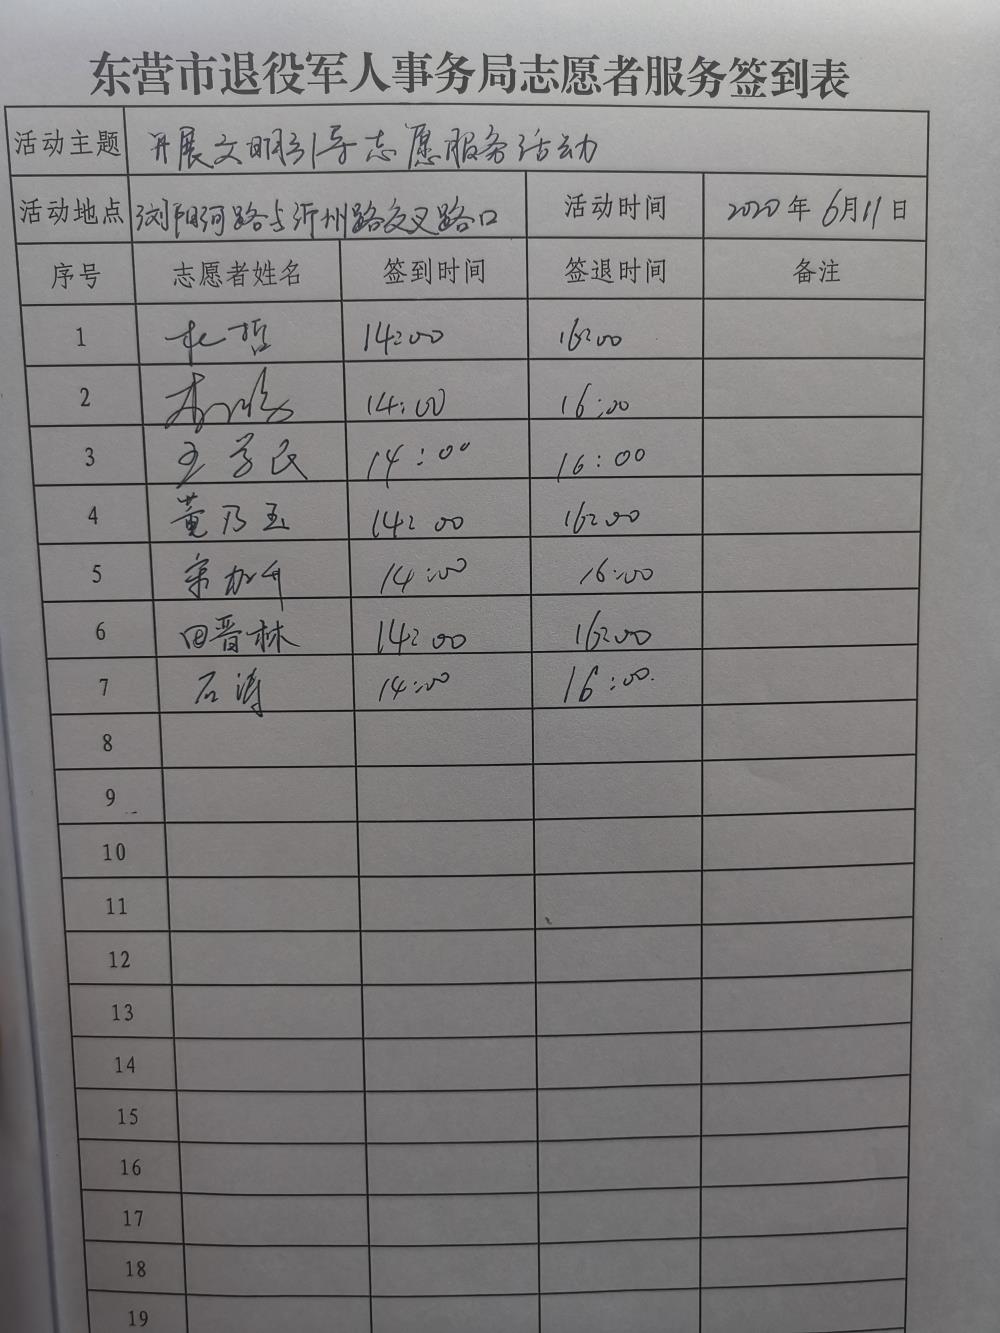 东营市退役军人事务局志愿者服务签到表
活动主题 开展文明引导志愿服务活动
活动地点 浏阳河路与沂州路交叉路口 活动时间 2020年6月11日
序号 志愿者姓名 签到时间 签退时间 备注
1 杜哲 14:00 16:00
2 14:00 16:00
3 王学民 14:00 16:00
4 董乃玉 14:00 16:00
5 14:00 16:00
6 田晋林 14:00 16:00
7 石涛 14:00 16:00
8
9
10
11
12
13
14
15
16
17
18
19